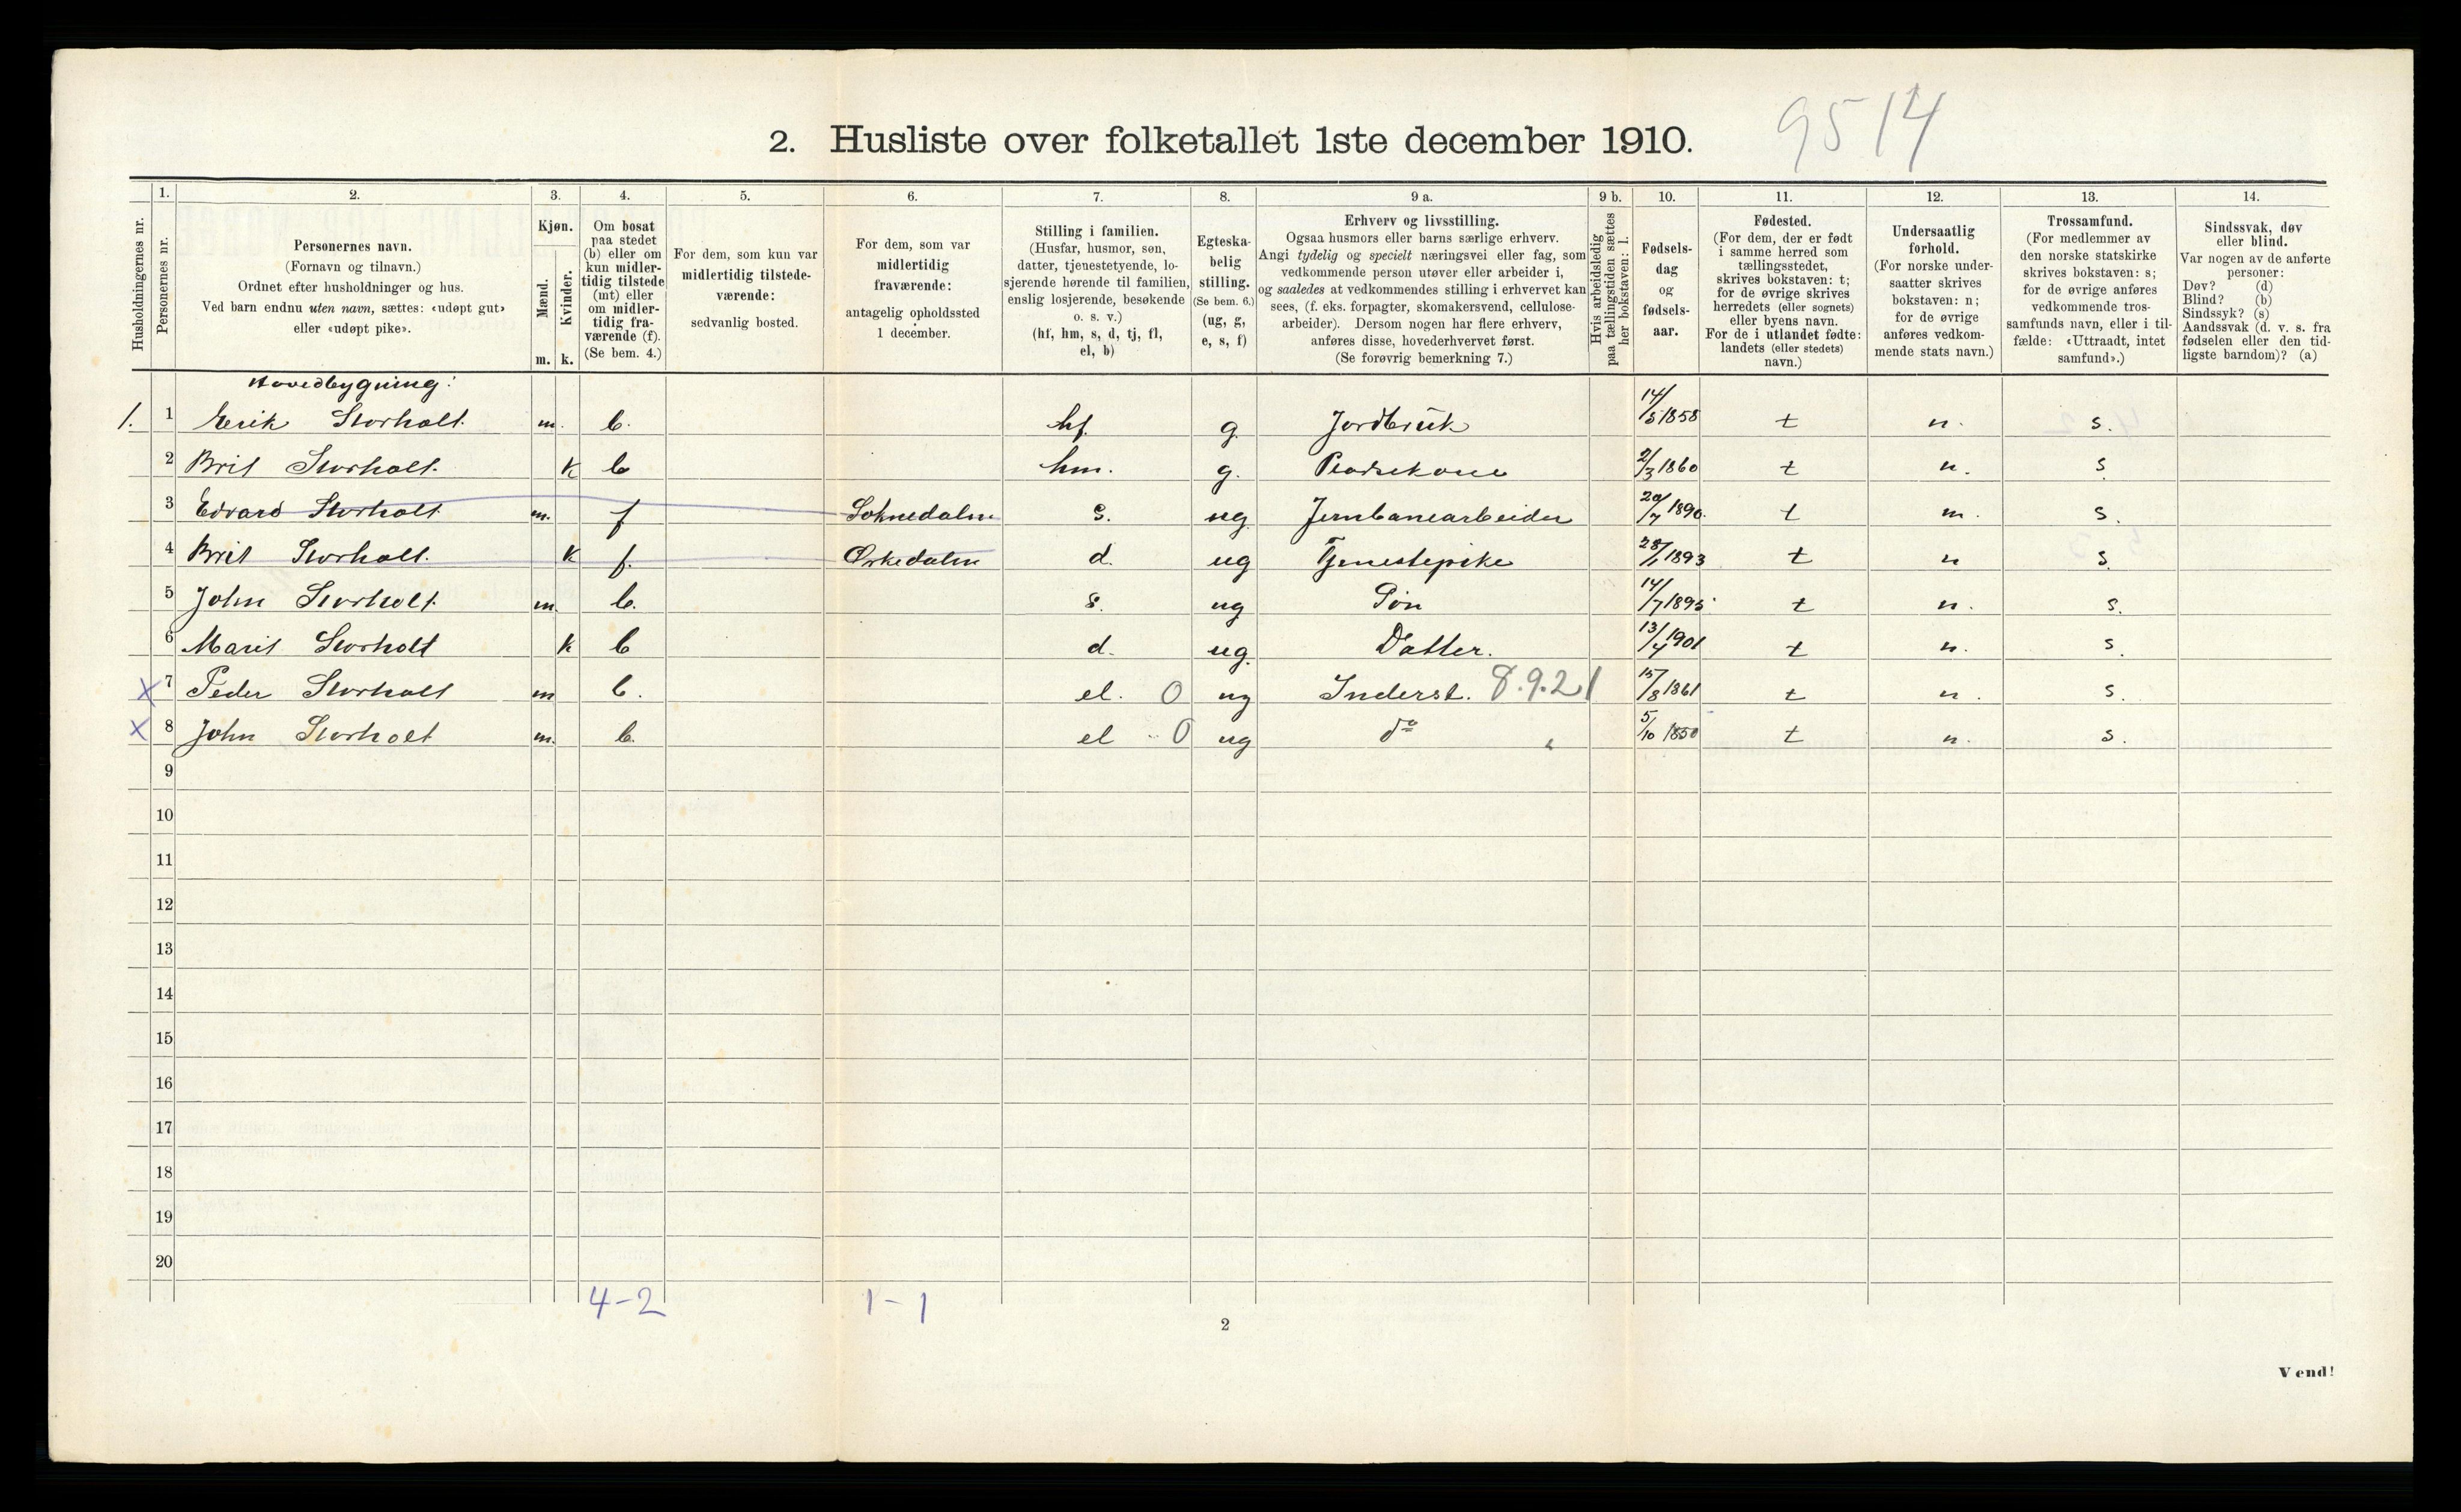 2. Husliste over folketallet 1ste december 1910.
9514
Husholdningernes nr.
1.
Personernes nr.
2.
Personernes navn.
(Fornavn og tilnavn.)
Ordnet efter husholdninger og hus.
Ved barn endnu uten navn, sættes: «udøpt gut»
eller «udøpt pike».
3.
Kjøn.
Mænd.
Kvinder.
m. k.
4.
Om bosat
paa stedet
(b) eller om
kun midler-
tidig tilstede
(mt) eller
om midler-
tidig fra-
værende (f).
(Se bem. 4.)
5.
For dem, som kun var
midlertidig tilstede-
værende:
sedvanlig bosted.
6.
For dem, som var
midlertidig
fraværende:
antagelig opholdssted
1 december.
7.
Stilling i familien.
(Husfar, husmor, søn,
datter, tjenestetyende, lo-
sjerende hørende til familien,
enslig losjerende, besøkende
o. s. v.)
(hf, hm, s, d, tj, fl,
el, b)
8.
Egteska-
belig
stilling.
(Se bem. 6.)
(ug, g,
e, s, f)
9 a.
Erhverv og livsstilling.
Ogsaa husmors eller barns særlige erhverv.
Angi tydelig og specielt næringsvei eller fag, som
vedkommende person utøver eller arbeider i,
og saaledes at vedkommendes stilling i erhvervet kan
sees, (f. eks. forpagter, skomakersvend, cellulose-
arbeider). Dersom nogen har flere erhverv,
anføres disse, hovederhvervet først.
(Se forøvrig bemerkning 7.)
9 b.
Hvis arbeidsledig
paa tællingstiden sættes
her bokstaven: l.
10.
Fødsels-
dag
og
fødsels-
aar.
11.
Fødested.
(For dem, der er født
i samme herred som
tællingsstedet,
skrives bokstaven: t;
for de øvrige skrives
herredets (eller sognets)
eller byens navn.
For de i utlandet fødte:
landets (eller stedets)
navn.)
12.
Undersaatlig
forhold.
(For norske under-
saatter skrives
bokstaven: n;
for de øvrige
anføres vedkom-
mende stats navn.)
13.
Trossamfund.
(For medlemmer av
den norske statskirke
skrives bokstaven: s;
for de øvrige anføres
vedkommende tros-
samfunds navn, eller i til-
fælde: «Uttraadt, intet
samfund».)
14.
Sindssvak, døv
eller blind.
Var nogen av de anførte
personer:
Døv? (d)
Blind? (b)
Sindssyk? (s)
Aandssvak (d. v. s. fra
fødselen eller den tid-
ligste barndom)? (a)
Hovedbygning:
1. 1 Erik Storholt m. b. hf. g. Jordbruk 14/5 1858 t n. s.
2 Brit Storholt. k b hm. g. 2/3 1860 t n. s
3 Edvard Storholt m. f Soknedalen s. ug Jernbanearbeider 20/7 1890. t n. s.
4 Brit Storholt. k f. Orkedalen d. ug Tjenestepike 28/1 1893 t n s.
5 John Storholt m. b. s. ug Søn 14/7 1895 t n. s.
6 Marit Storholt k b d. ug. Datter. 13/4 1901 t n. s.
X 7 Peder Storholt m b. el. 0 ug Inderst. 8.9.21 15/8 1861 t n. s.
X 8 John Storholt m. b. el 0 ug do " 5/10 1850 t n. s.
9
10
11
12
13
14
15
16
17
18
19
20
4-2 1-1
2
Vend!